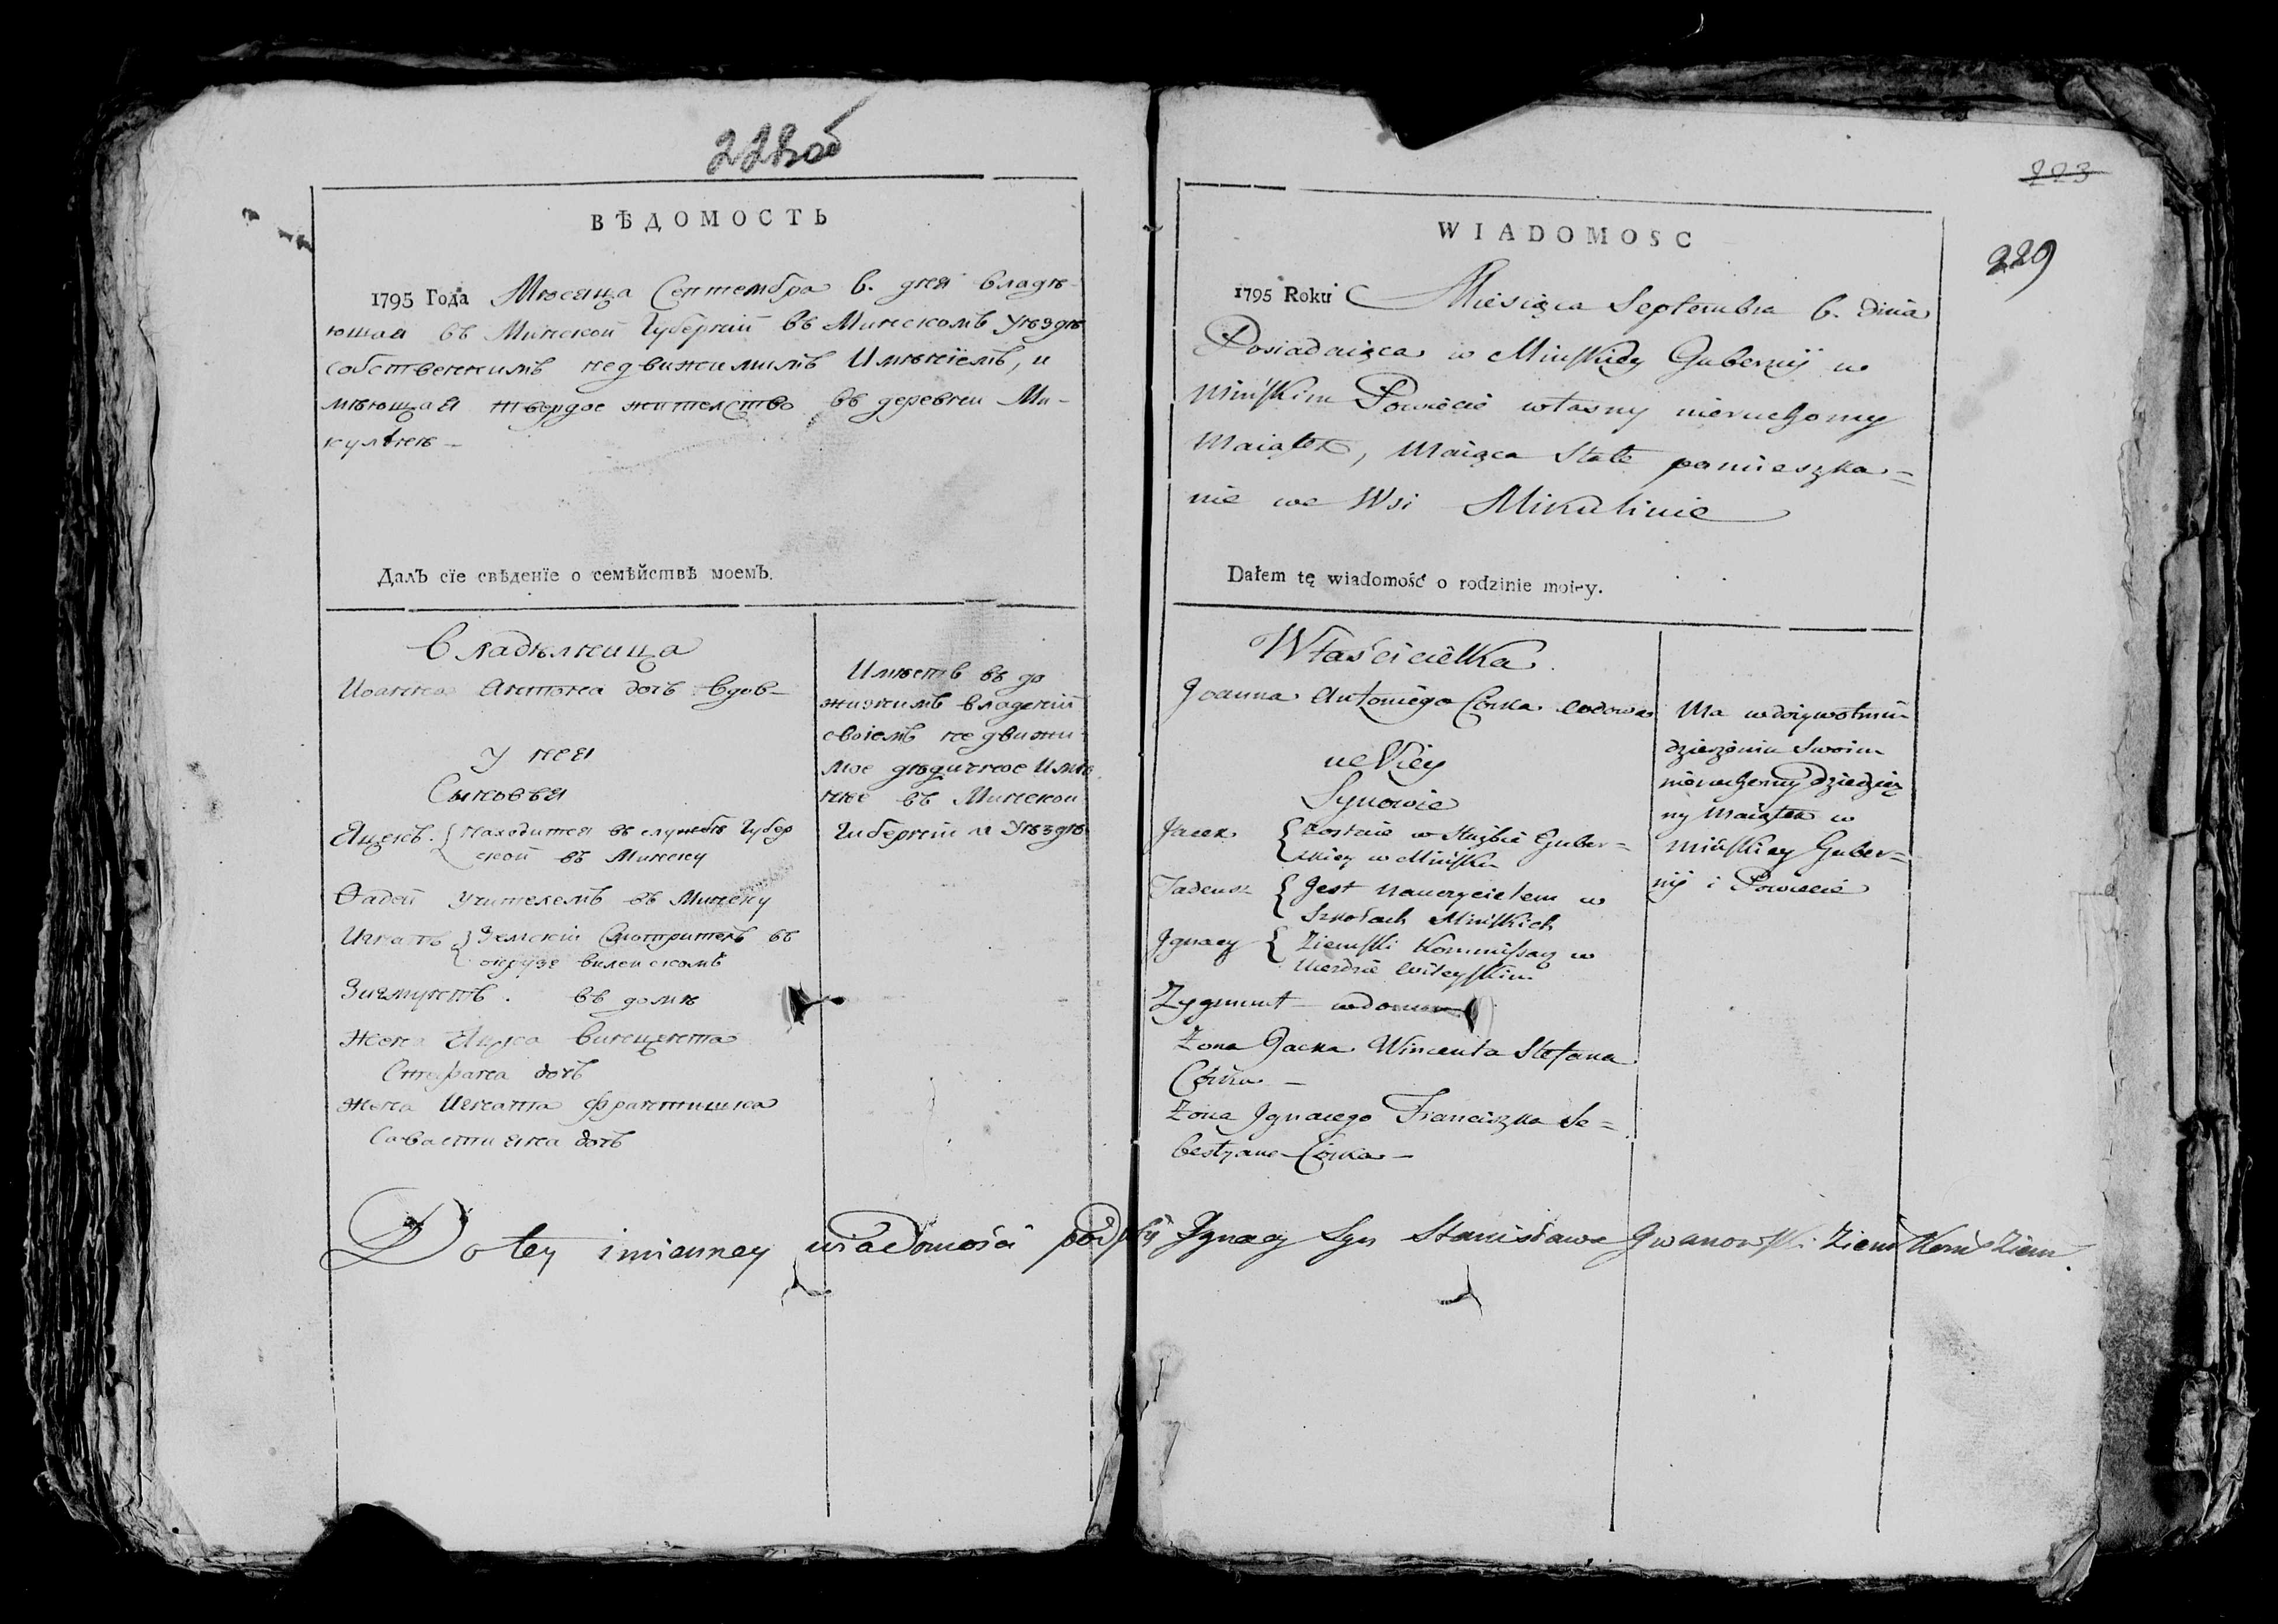 228об
ВѢДОМОСТЬ
1795 Года Мѣсяца Септембра 6. дня владѣ-
ющая въ Минской Губерніи въ Минскомъ Уѣздѣ
собственнимъ недвижимымъ Имѣніемъ, и
мѣющая твердое жителство въ деревни Ми-
кулинѣ —
ДалЪ сїе свѣденїе о семѣйствѣ моемЪ.
Владѣлница
Иоанна Антона дочь вдов-
у нея
Сыновья
Яцекъ. { находится въ службѣ Губер
ской въ Минску
Фадей учителемъ въ Минску
Игнатъ } Земскій Смотритель въ
окрузе вилейскомъ
Зигмунтъ. въ домѣ
Жена Яцка Винцента
Стефана дочь
Жена Игната Францишка
Савастияна дочь
Имѣетъ въ до
жизнимъ владеніи
своіемъ недвижи-
мое дѣдичное Имѣ
ніе въ Минской
Губерніи и Уѣздѣ
223
229
WIADOMOSC
1795 Roku Miesiąca Septembra 6. dnia
Posiadaiąca w Minskiey Gubernij w
Mińskim Powiecie własny nieruchomy
Maiątek, Maiąca Stałe pomieszka=
nie we Wsi Mikulinie
Dałem tę wiadomość o rodzinie moiey.
Właścicielka
Joanna Antoniego Corka wdowa
u Niey
Synowie
Jacek { zostaie w służbie Guber=
skiey w Mińsku
Tadeusz { Jest Nauczycielem w
Szkołach Mińskich
Jgnacy { Ziemski Kommissarz w
Uiezdzie wileyskim
Zygmunt — w domu
Zona Jacka Wincenta Stefana
Córka —
Zona Jgnacego Franciszka Se=
bestyana Córka —
Ma w dożywotnim
dzierżeniu Swoim
nieruchomy dziedzicz
ny Maiątek w
Mińskiey Guber=
nij i Powiecie
Do tey imienney wiadomości podpis Jgnacy Syn Stanisława Jwanowski Ziem Kom Ziem.